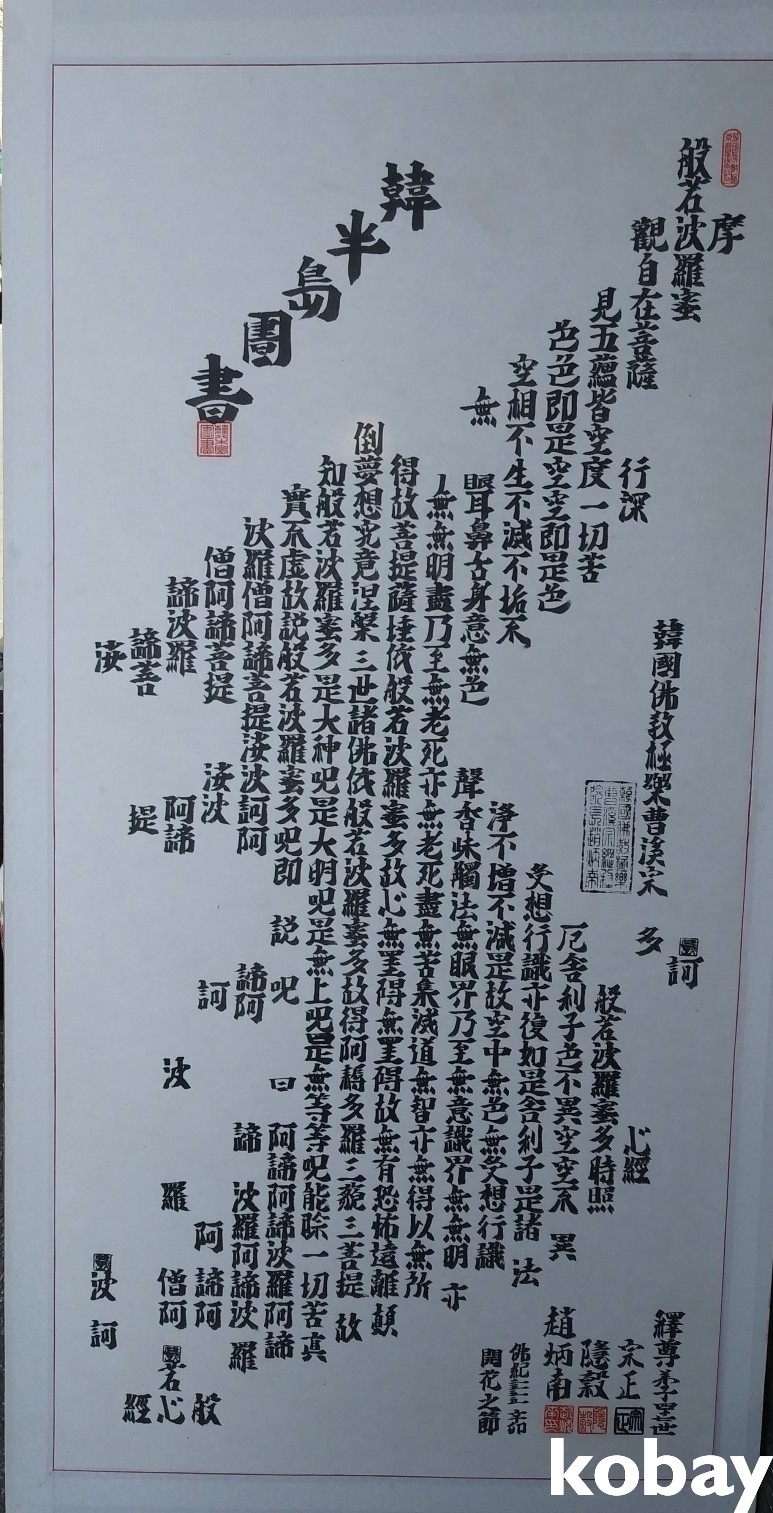 韓半島圖書
摩
般若波羅蜜
訶
觀自在菩薩
多
行深
心經
般若波羅蜜多時照
見五蘊皆空度一切苦
厄舍利子色不異空空不異
色色即是空空即是色
受想行識亦復如是舍利子是諸法
空相不生不滅不垢不
淨不增不減是故空中無色無受想行識
無
眼耳鼻舌身意無色
聲香味觸法無眼界乃至無意識界無無明亦
無無明盡乃至無老死亦無老死盡無苦集滅道無智亦無得以無所
得故菩提薩埵依般若波羅蜜多故心無罣碍無罣碍故無有恐怖遠離顛
倒夢想究竟涅槃三世諸佛依般若波羅蜜多故得阿耨多羅三藐三菩提故
知般若波羅蜜多是大神呪是大明呪是無上呪是無等等呪能除一切苦真
實不虛故説般若波羅蜜多呪即
説呪曰
阿諦阿諦波羅阿諦
波羅僧阿諦菩提娑波訶阿
諦阿
諦
波羅阿諦波羅
僧阿諦菩提
娑波
訶
阿諦阿
諦波羅
阿諦
波
羅
僧阿
諦菩
提
娑
波訶
般若心經
韓國佛教極樂曹溪宗
釋尊弟子
宗正
隱穀
趙炳南
佛紀
辛卯
開花之節
kobay